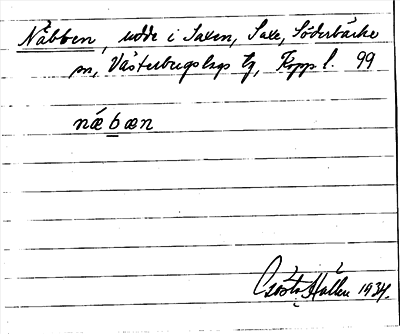 Näbben, udde i Saxen, Saxe, Söderbärke
sn, Västerbergslags tg, Kopp l. 99
næ̀bæn
Gösta Hallén 1934.